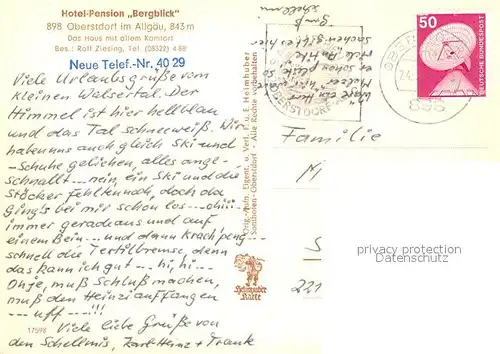 Hotel-Pension „Bergblick"
898 Oberstdorf im Allgäu, 843 m
Das Haus mit allem Komfort
Bes.: Ralf Ziesing, Tel. (08322) 4 88
Neue Telef.-Nr. 40 29
Viele Urlaubsgrüße vom
kleinen Walsertal. Der
Himmel ist hier hellblau
und das Tal schneeweiß. Wir
haben uns auch gleich Ski und
-Schuhe geliehen, alles ange-
schnallt -- nein, ein Ski und die
Stöcker fehlten noch, doch da
ging's bei mir schon los --- ohiii---
immer geradeaus und auf
einem Bein --- und dann krach, peng--
schnell die Tertilbremse denn
das kann ich gut --- hi, hi...
Ohje, muß Schluß machen,
muß den Heinzi auffangen
--- uff !!!
Viele liebe Grüße von
den Schellmis, Karl-Heinz + Frank
17598
Orig.-Aufn. Eigent. u. Verl. F. u. E. Heimhuber
Sonthofen-Oberstdorf - Alle Rechte vorbehalten
Heimhuber
Karte
50
DEUTSCHE BUNDESPOST
898
OBERSTDORF
Familie
M
S
221
privacy protection
Datenschutz